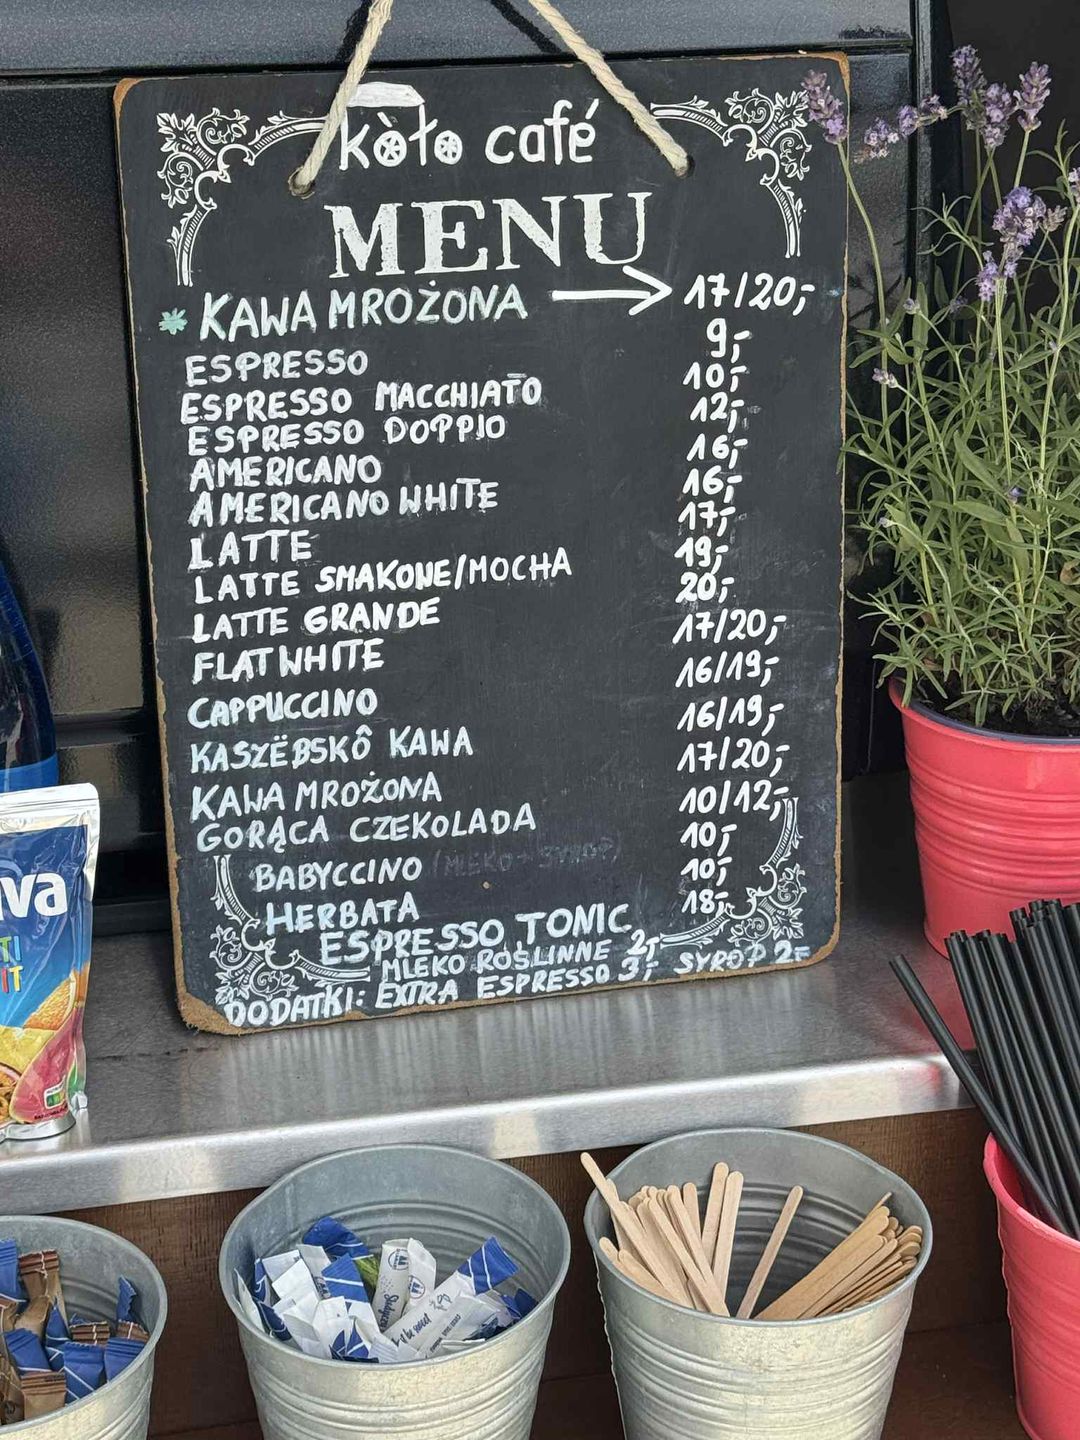 kòło café
MENU
KAWA MROŻONA → 17/20,-
ESPRESSO 9,-
ESPRESSO MACCHIATO 10,-
ESPRESSO DOPPIO 12,-
AMERICANO 16,-
AMERICANO WHITE 16,-
LATTE 17,-
LATTE SMAKOWE/MOCHA 19,-
LATTE GRANDE 20,-
FLAT WHITE 17/20,-
CAPPUCCINO 16/19,-
KASZËBSKÔ KAWA 16/19,-
KAWA MROŻONA 17/20,-
GORĄCA CZEKOLADA 10/12,-
BABYCCINO (MLEKO + SYROP) 10,-
HERBATA 10,-
ESPRESSO TONIC 18,-
MLEKO ROŚLINNE 2,-
DODATKI: EXTRA ESPRESSO 3,- SYROP 2,-
iva